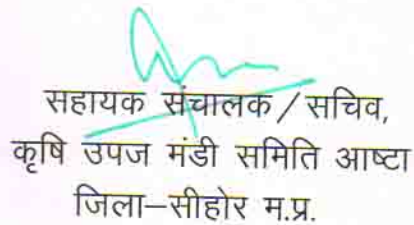 सहायक संचालक / सचिव,
कृषि उपज मंडी समिति आष्टा
जिला–सीहोर म.प्र.